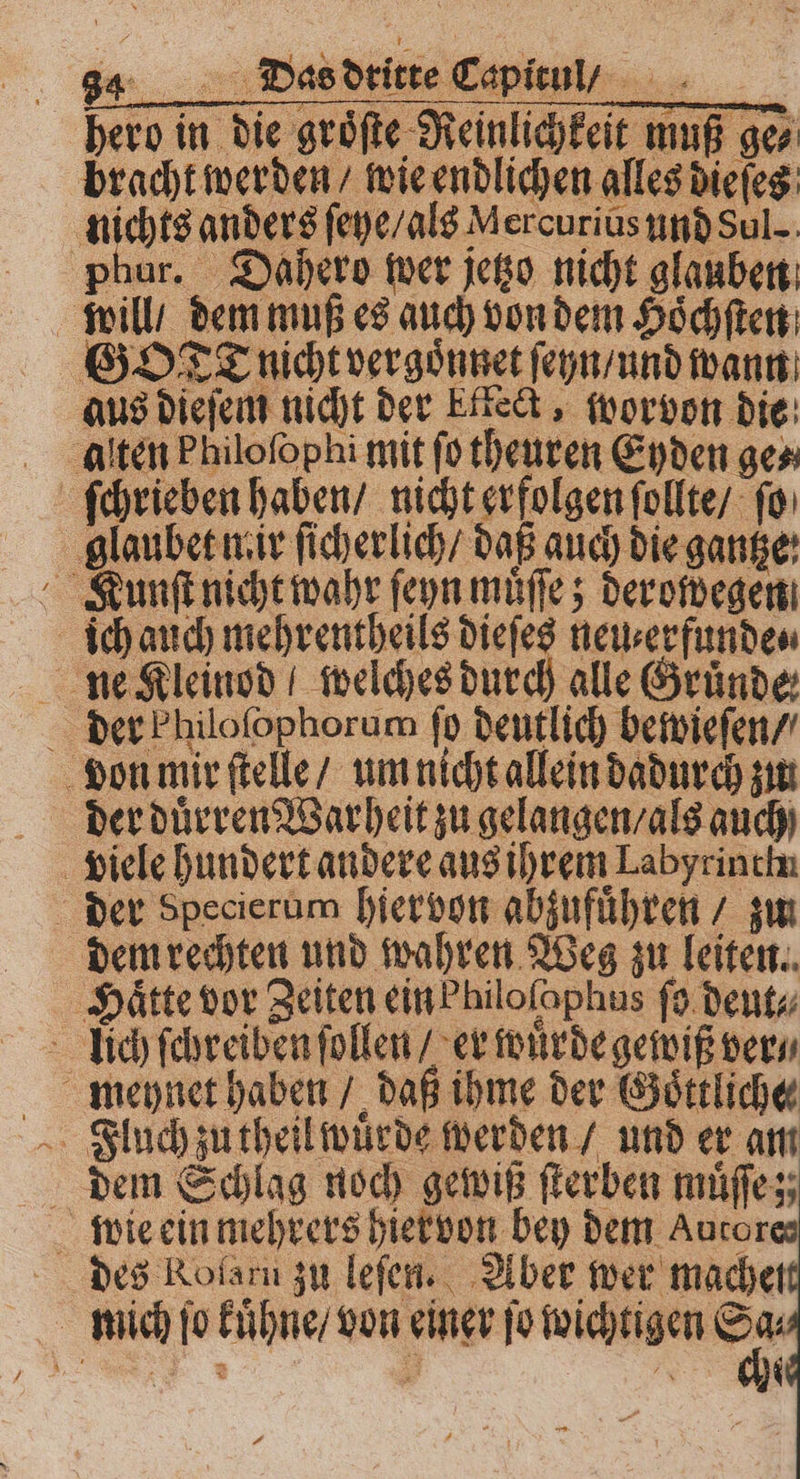 34 Das dritte Capitul/
hero in die gröſte Reinlichkeit muß ge⸗
bracht werden / wie endlichen alles dieſes
nichts anders ſeye/als Mercurius und Sul-
phur. Dahero wer jetzo nicht glauben
will/ dem muß es auch von dem Höchſten
GOTT nicht vergönnet ſeyn/und wann
aus dieſem nicht der Effect, worvon die
alten Philoſophi mit ſo theuren Eyden ge⸗
ſchrieben haben/ nicht erfolgen ſollte/ ſo
glaubet mir ſicherlich/ daß auch die gantze
Kunſt nicht wahr ſeyn müſſe; derowegen
ich auch mehrentheils dieſes neu⸗erfunde⸗
ne Kleinod / welches durch alle Gründe
der Philoſophorum ſo deutlich bewieſen/
von mir ſtelle / um nicht allein dadurch zu
der dürren Warheit zu gelangen/als auch
viele hundert andere aus ihrem Labyrinth
der Specierum hiervon abzuführen / zu
dem rechten und wahren Weg zu leiten.
Hätte vor Zeiten ein Philoſophus ſo deut⸗
lich ſchreiben ſollen / er würde gewiß ver⸗
meynet haben / daß ihme der Göttliche
Fluch zu theil würde werden / und er an
dem Schlag noch gewiß ſterben müſſe;
wie ein mehrers hiervon bey dem Autore
des Roſarii zu leſen. Aber wer machet
mich ſo kühne/ von einer ſo wichtigen Sa⸗
che